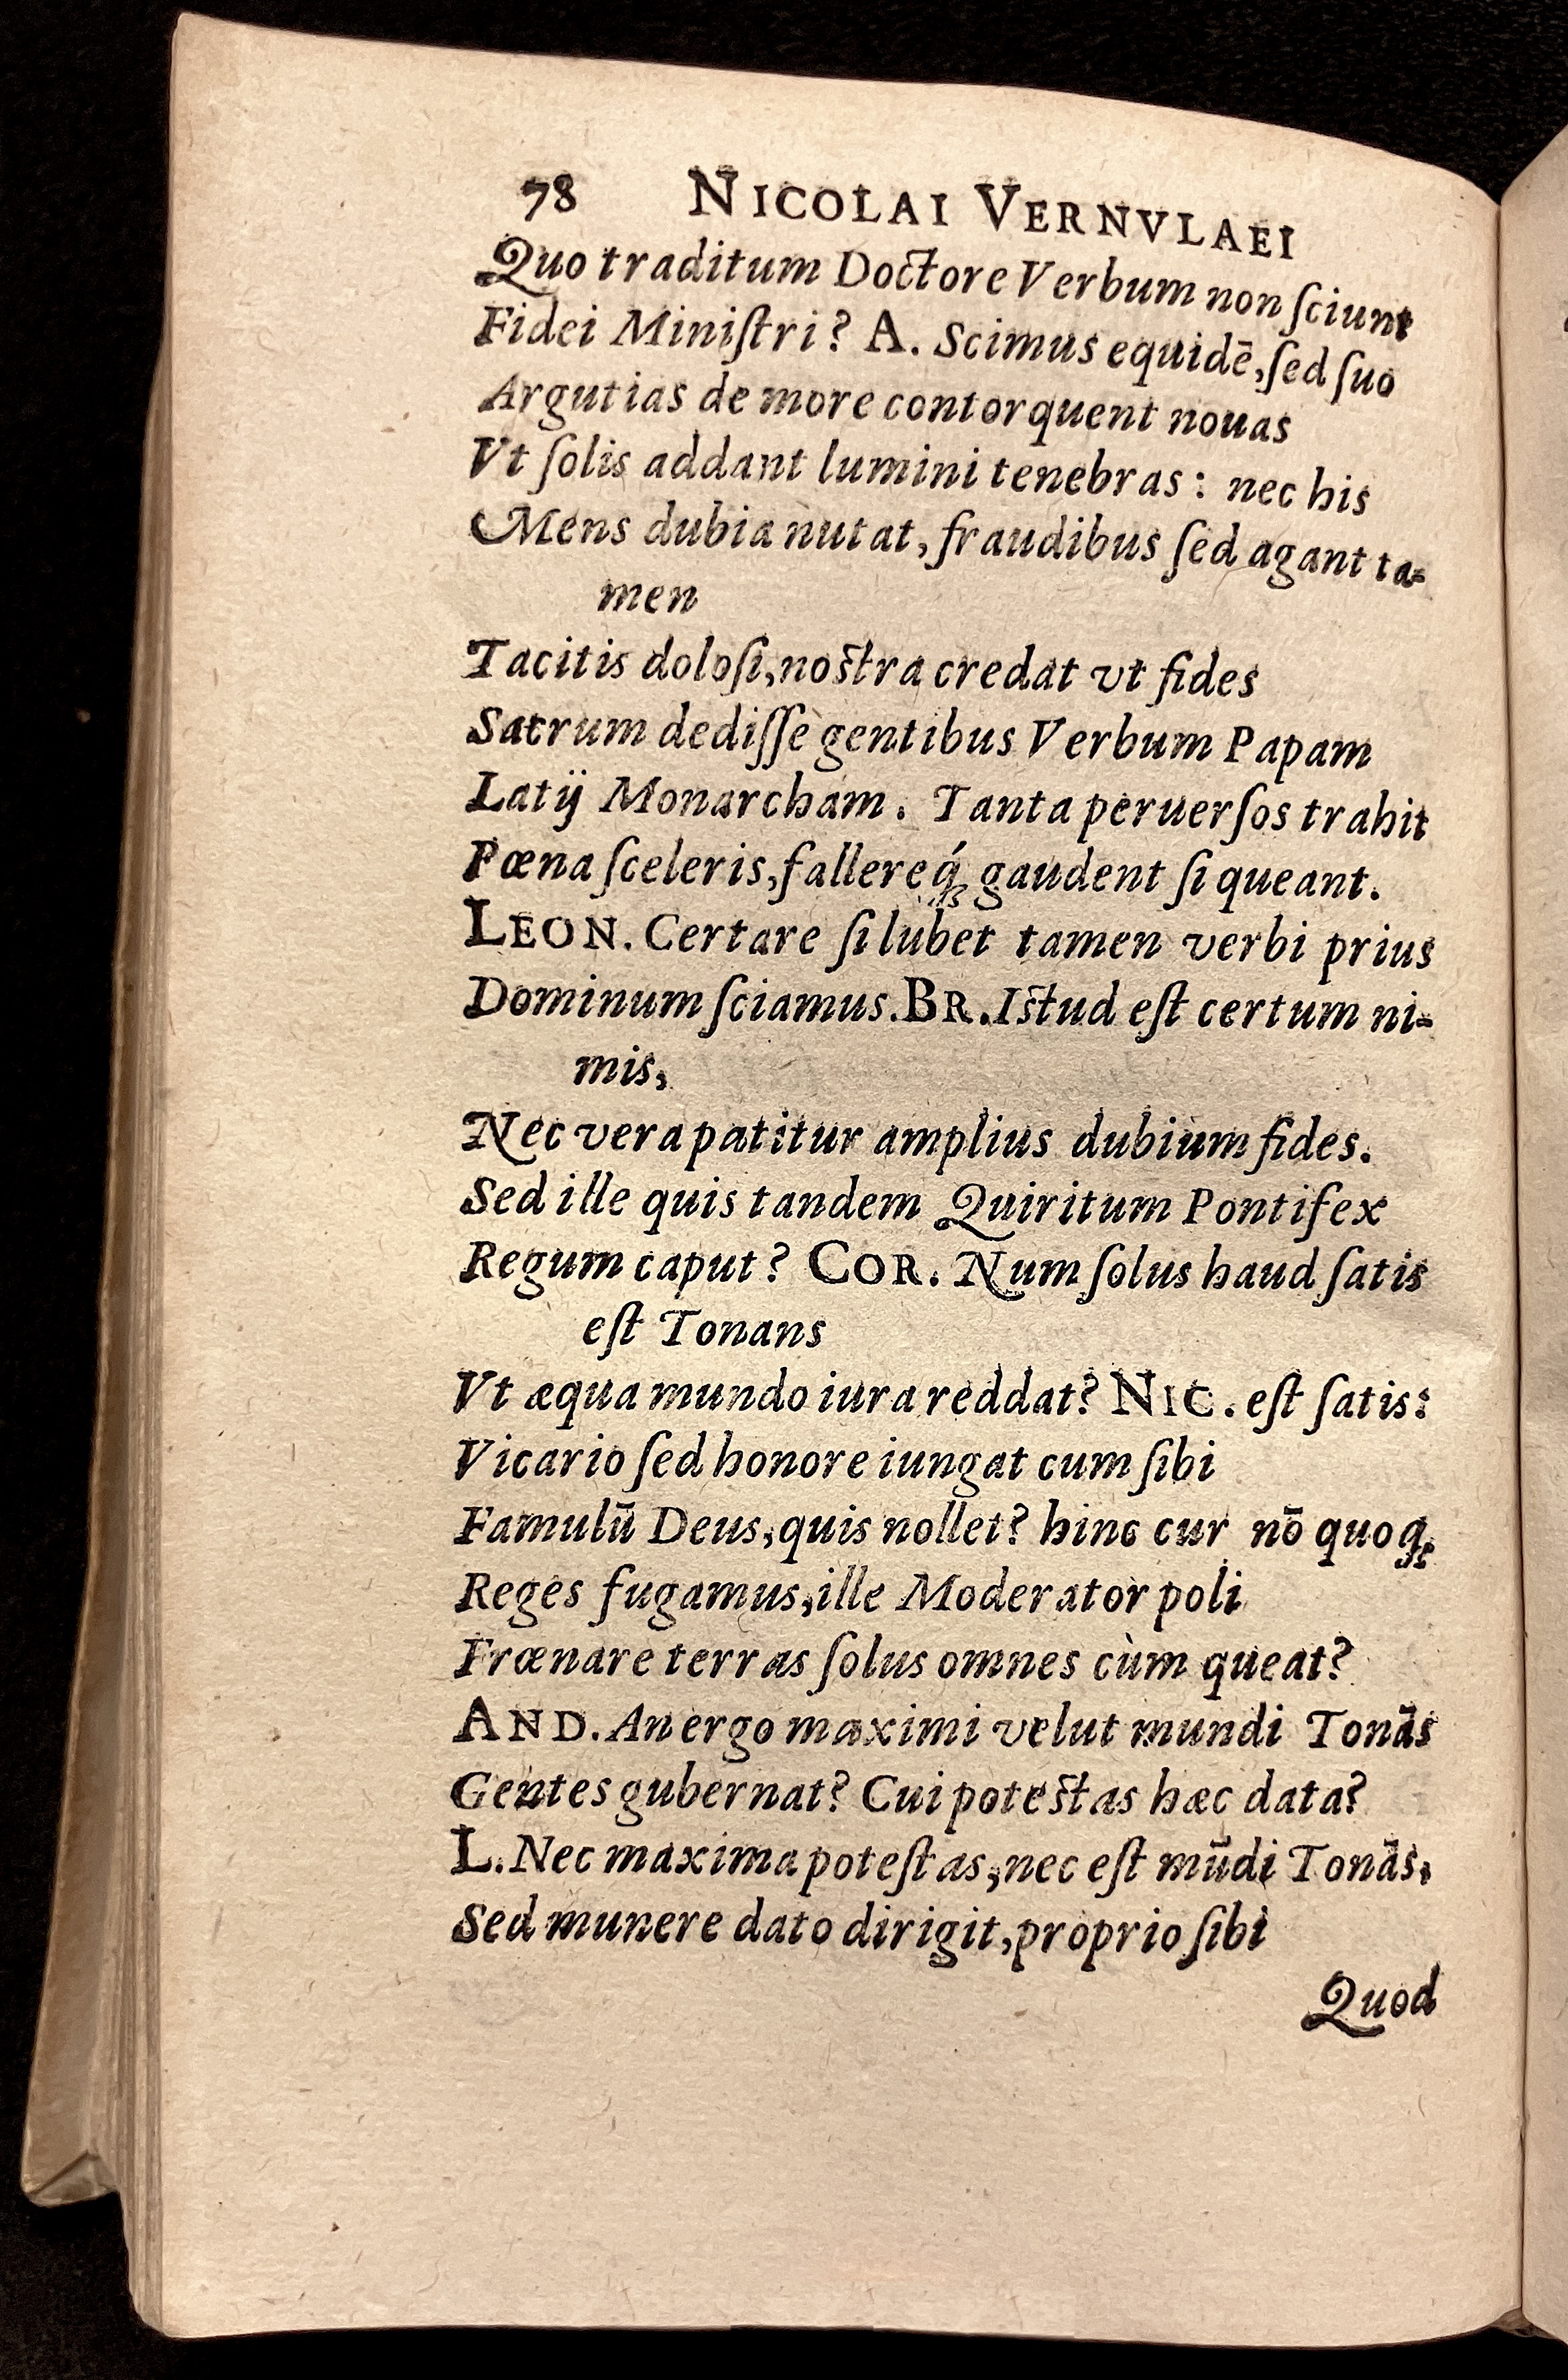 78 NICOLAI VERNVLAEI
Quo traditum Doctore Verbum non ſciunt
Fidei Miniſtri? A. Scimus equidē, ſed ſuo
Argutias de more contorquent nouas
Vt ſolis addant lumini tenebras: nec his
Mens dubia nutat, fraudibus ſed agant ta-
men
Tacitis doloſi, noſtra credat vt fides
Sacrum dediſſe gentibus Verbum Papam
Latij Monarcham. Tanta peruerſos trahit
Pœna ſceleris, fallereq́ꝫ gaudent ſi queant.
LEON. Certare ſi lubet tamen verbi prius
Dominum ſciamus. BR. Iſtud eſt certum ni-
mis,
Nec vera patitur amplius dubium fides.
Sed ille quis tandem Quiritum Pontifex
Regum caput? COR. Num ſolus haud ſatis
eſt Tonans
Vt æqua mundo iura reddat? NIC. eſt ſatis:
Vicario ſed honore iungat cum ſibi
Famulū Deus, quis nollet? hinc cur nō quoqꝫ
Reges fugamus, ille Moderator poli
Frœnare terras ſolus omnes cùm queat?
AND. An ergo maximi velut mundi Tonās
Gentes gubernat? Cui poteſtas hæc data?
L. Nec maxima poteſtas, nec eſt mūdi Tonās,
Sed munere dato dirigit, proprio ſibi
Quod